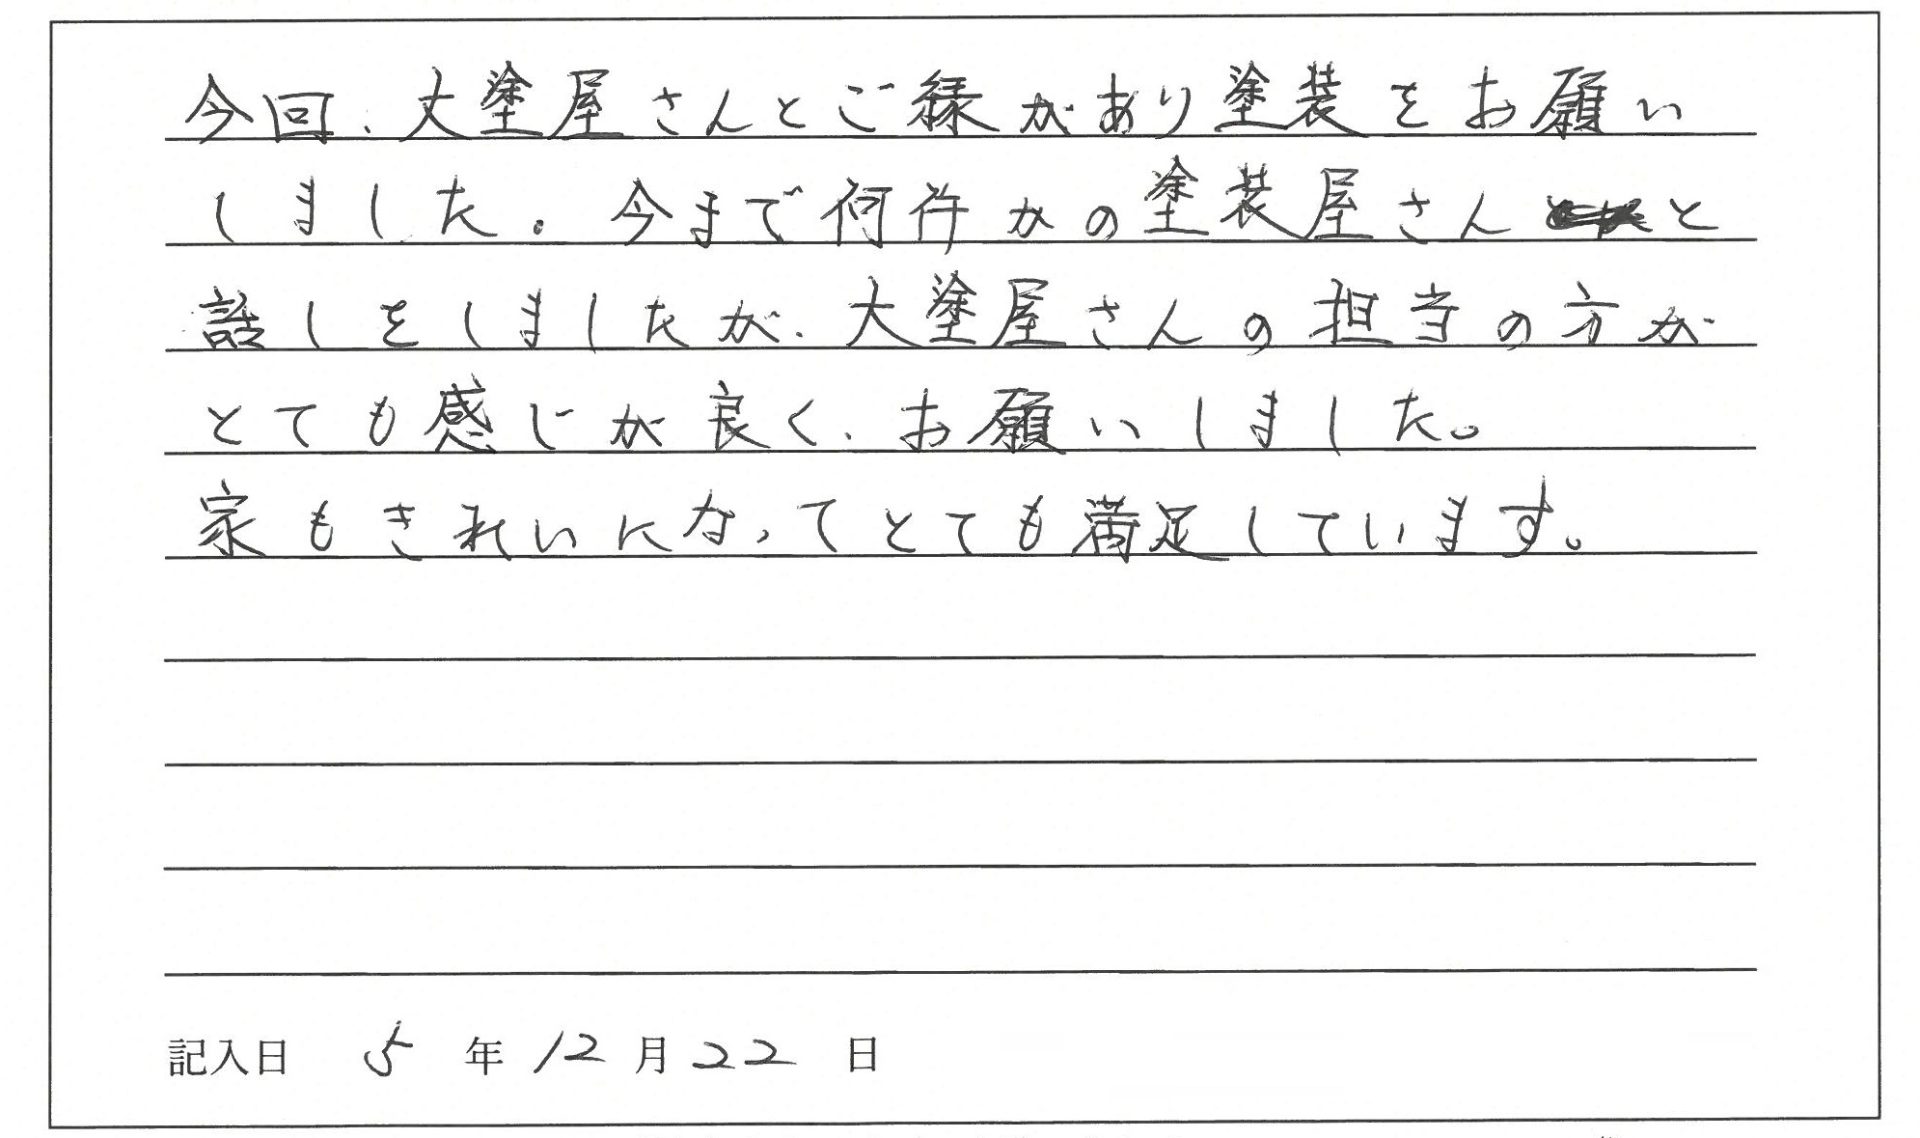 今回、大塗屋さんとご縁があり塗装をお願い
しました。今まで何件かの塗装屋さんと
話しをしましたが、大塗屋さんの担当の方が
とても感じが良く、お願いしました。
家もきれいになってとても満足しています。
記入日 5 年 12 月 22 日